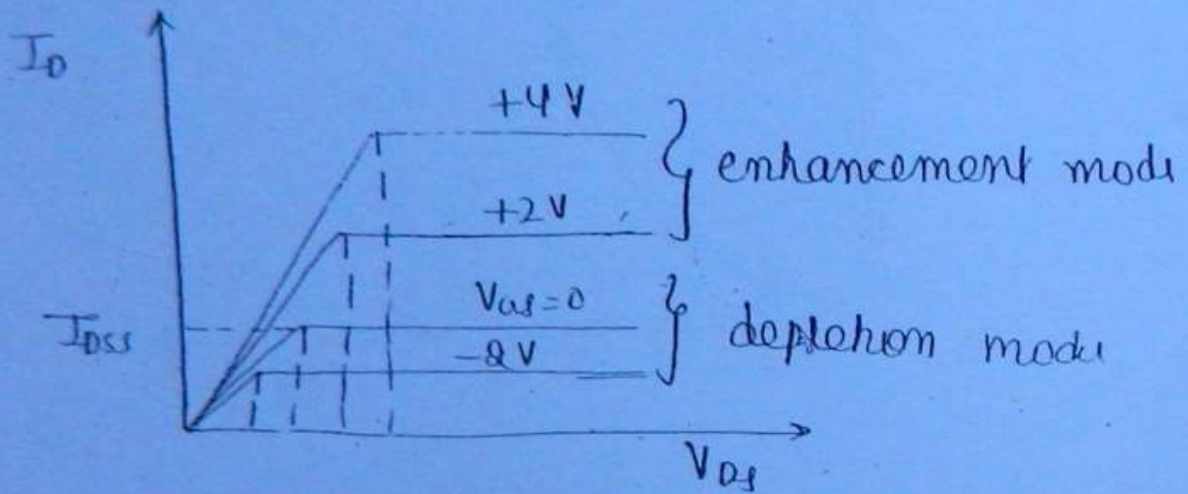 I_D
+4 V
enhancement mode
+2 V
V_GS = 0
I_DSS
depletion mode
-2 V
V_DS